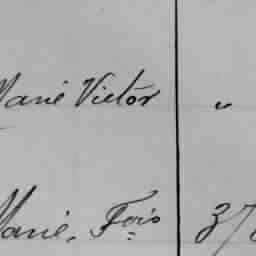 Marie Victor "
Marie, Fois 37